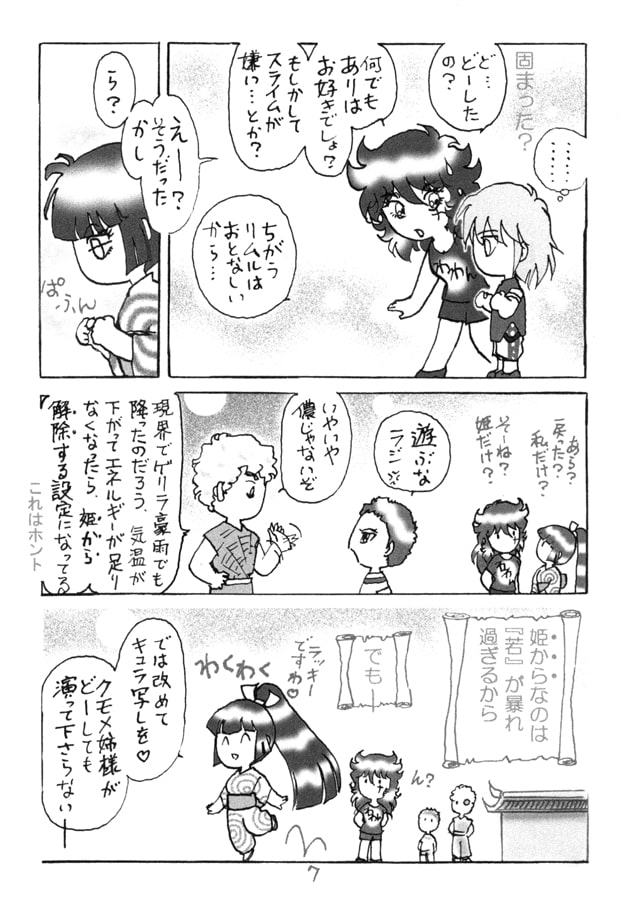 固まった？
ど…
どーした
の？
何でも
ありは
お好きでしょ？
もしかして
スライムが
嫌い…とか？
…………
ちがう
リムルは
おとなしい
から…
わわん
えー？
そうだった
かし
ら？
ぱふん
あら？
戻った？
私だけ？
そーね？
姫だけ？
遊ぶな
ラジ
いやいや
儂じゃないぞ
現界でゲリラ豪雨でも
降ったのだろう、気温が
下がってエネルギーが足り
なくなったら、姫から
解除する設定になってる
これはホント
わわ
姫からなのは
『若』が暴れ
過ぎるから
でも―
ん？
ラッキー
ですわ♡
わくわく
では改めて
キュラ写しを♡
クモメ姉様が
どーしても
演って下さらない―
7